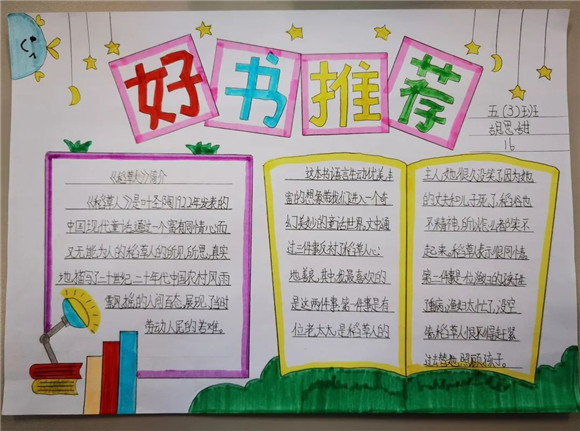 好书推荐
五(3)班
胡思甜
16
《稻草人》简介
《稻草人》是叶圣陶1922年发表的
中国现代童话,通过一个富有同情心而
又无能为人的稻草人的所见所思,真实
地描写了二十世纪二十年代中国农村风雨
飘摇的人间百态,展现了当时
劳动人民的苦难。
这本书语言生动优美,丰
富的想象带我们进入一个奇
幻美妙的童话世界,文中通
过三件事反衬了稻草人心
地善良,其中,我最喜欢的
是这两件事:第一件事是有
位老太太,是稻草人的
主人,她很久没笑了,因为她
的丈夫和儿子死了,稻谷也
不精神,所以
起来。稻草人表示很同情
第一件事是一位渔妇的孩子
生病,渔妇太忙了,没空
稻草人恨不得赶紧
过去替她照顾孩子。